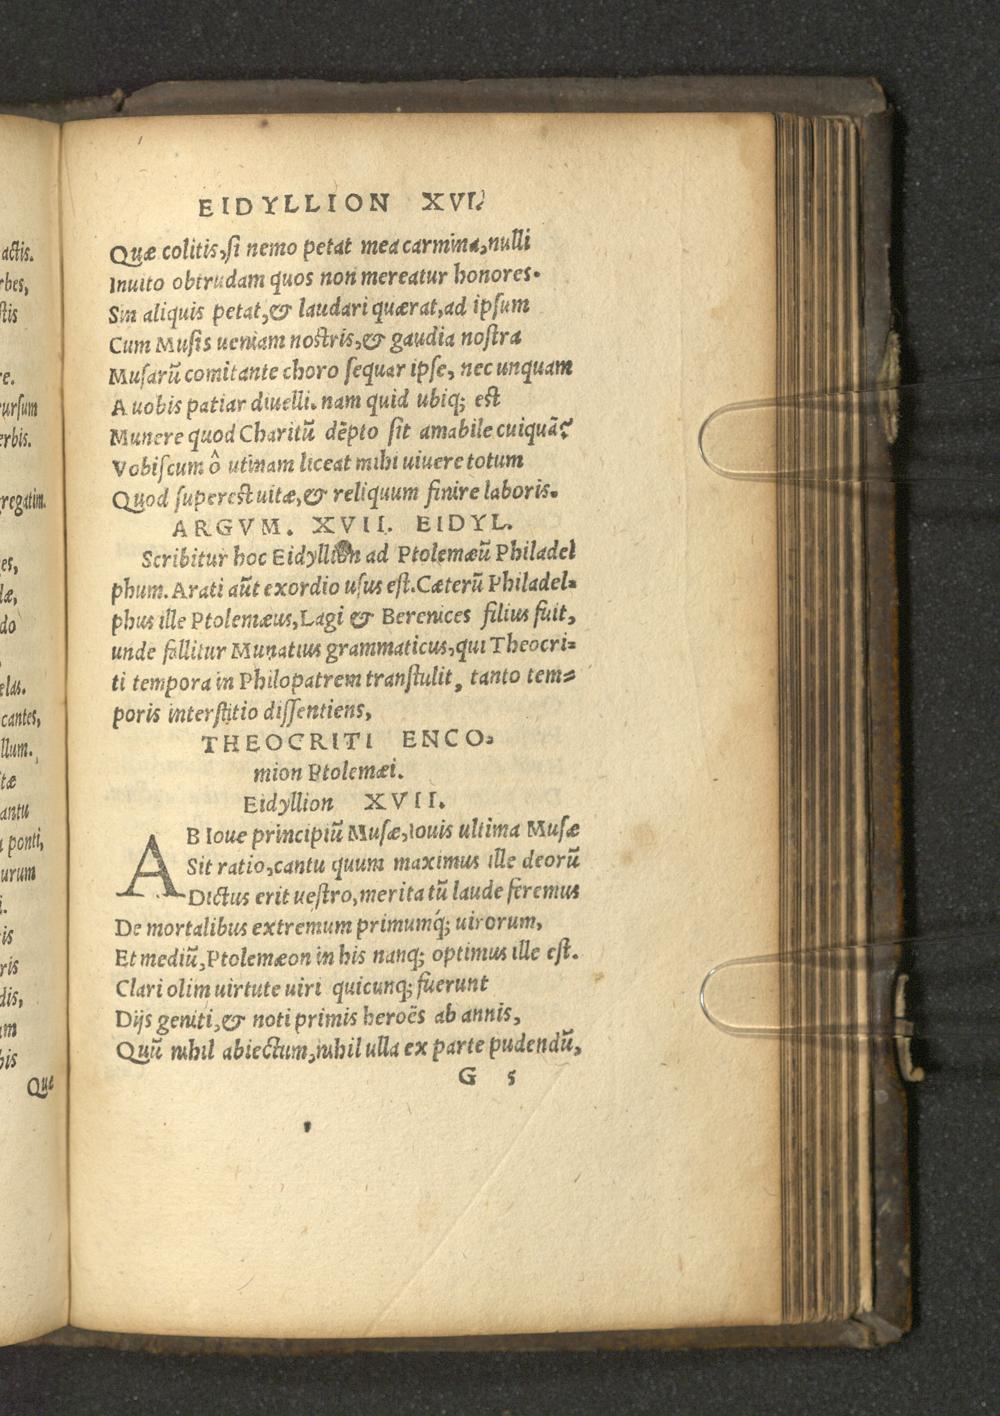 actis.
rbes,
stis
re.
rursum
erbis.
gregatim.
es,
læ,
do
elas.
cantes,
llum.
tæ
antu
ponti,
urum
i.
is
ris
dis,
um
his
Quæ
EIDYLLION XVI.
Quæ colitis, si nemo petat mea carmina, nulli
Inuito obtrudam quos non mereatur honores.
Sin aliquis petat, & laudari quærat, ad ipsum
Cum Musis ueniam nostris, & gaudia nostra
Musarũ comitante choro sequar ipse, nec unquam
A uobis patiar diuelli. nam quid ubiq; est
Munere quod Charitũ dẽpto sit amabile cuiquã?
Vobiscum ô utinam liceat mihi uiuere totum
Quod superest uitæ, & reliquum finire laboris.
ARGVM. XVII. EIDYL.
Scribitur hoc Eidyllion ad Ptolemæũ Philadel
phum. Arati aũt exordio usus est. Cæterũ Philadel=
phus ille Ptolemæus, Lagi & Berenices filius fuit,
unde fallitur Munatius grammaticus, qui Theocri=
ti tempora in Philopatrem transtulit, tanto tem=
poris interstitio dissentiens,
THEOCRITI ENCO=
mion Ptolemæi.
Eidyllion XVII.
AB Ioue principiũ Musæ, Iouis ultima Musæ
Sit ratio, cantu quum maximus ille deorũ
Dictus erit uestro, merita tũ laude feremus
De mortalibus extremum primumq́; uirorum,
Et mediũ, Ptolemæon in his nanq; optimus ille est.
Clari olim uirtute uiri quicunq; fuerunt
Dijs geniti, & noti primis heroës ab annis,
Quũ nihil abiectum, nihil ulla ex parte pudendũ,
G 5